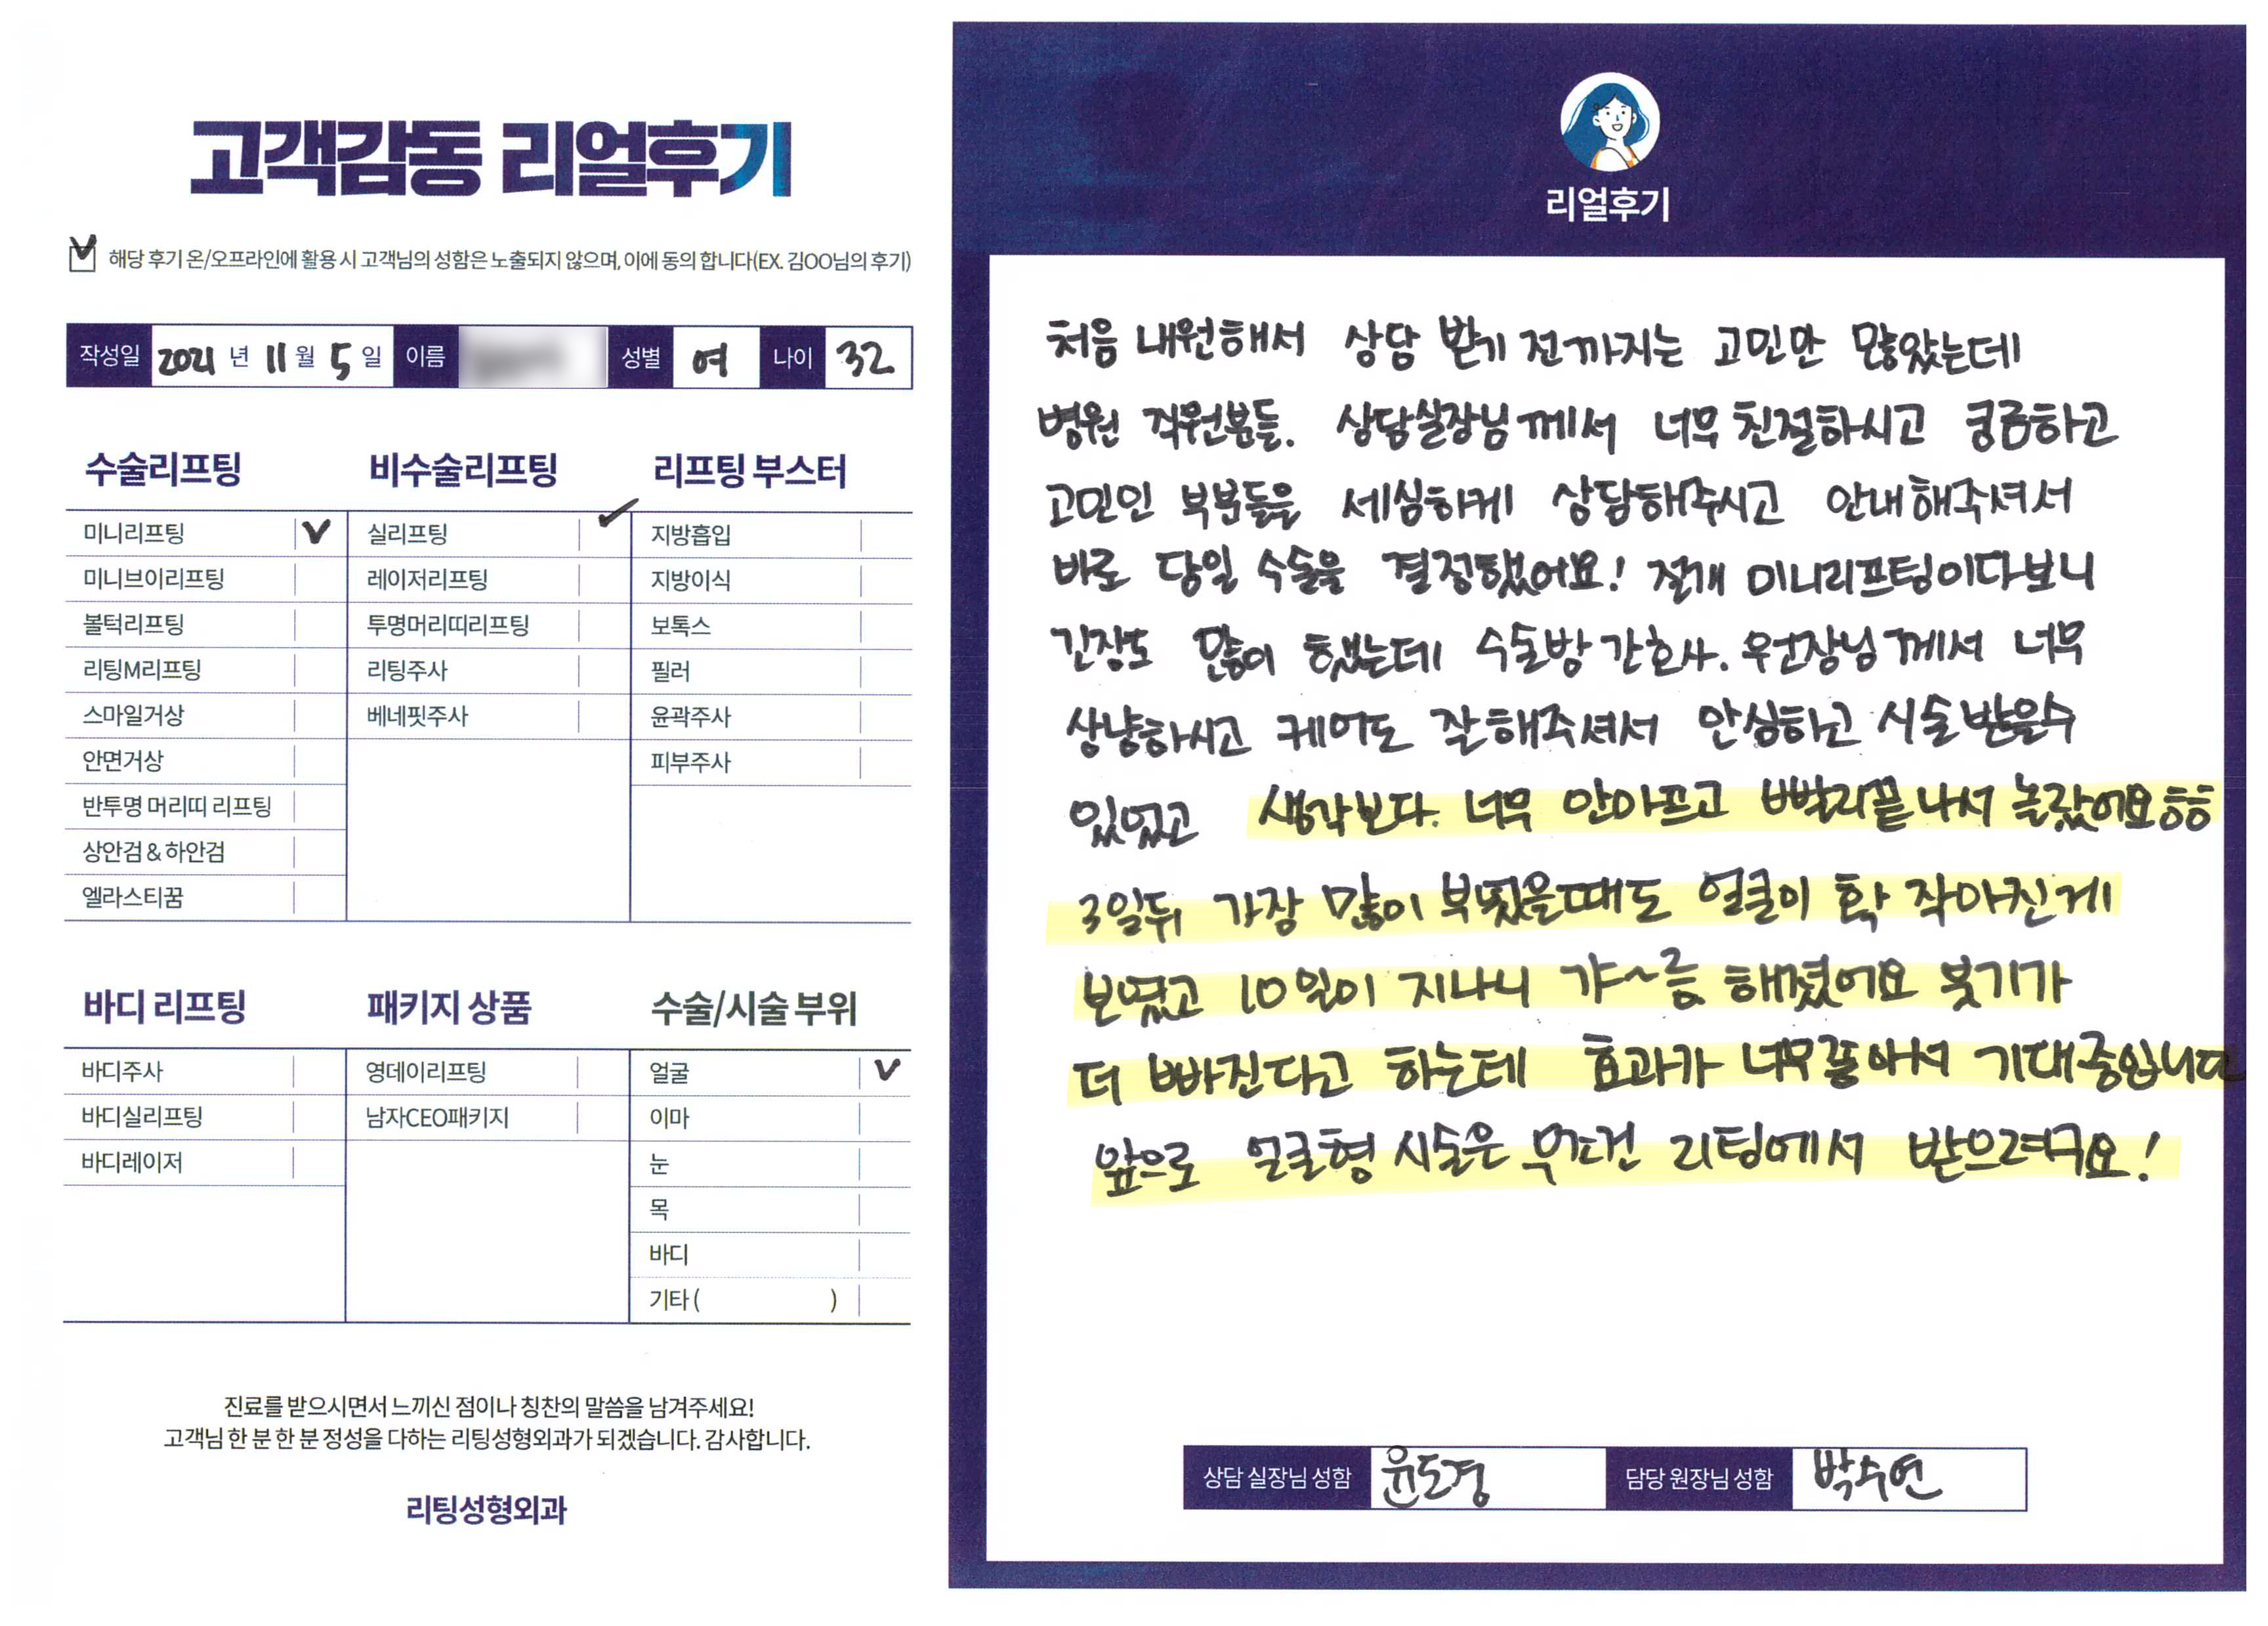 고객감동 리얼후기
해당 후기 온/오프라인에 활용 시 고객님의 성함은 노출되지 않으며, 이에 동의 합니다(EX. 김OO님의 후기)
작성일 2021 년 11 월 5 일 이름 성별 여 나이 32
수술리프팅
미니리프팅 V
미니브이리프팅
볼턱리프팅
리팅M리프팅
스마일거상
안면거상
반투명 머리띠 리프팅
상안검 & 하안검
엘라스티꿈
비수술리프팅
실리프팅 ✓
레이저리프팅
투명머리띠리프팅
리팅주사
베네핏주사
리프팅 부스터
지방흡입
지방이식
보톡스
필러
윤곽주사
피부주사
바디 리프팅
바디주사
바디실리프팅
바디레이저
패키지 상품
영데이리프팅
남자CEO패키지
수술/시술 부위
얼굴 V
이마
눈
목
바디
기타 ( )
진료를 받으시면서 느끼신 점이나 칭찬의 말씀을 남겨주세요!
고객님 한 분 한 분 정성을 다하는 리팅성형외과가 되겠습니다. 감사합니다.
리팅성형외과
리얼후기
처음 내원해서 상담 받기 전까지는 고민만 많았는데
병원 직원분들. 상담실장님께서 너무 친절하시고 궁금하고
고민인 부분들을 세심하게 상담해주시고 안내해주셔서
바로 당일 수술을 결정했어요! 절개 미니리프팅이다보니
긴장도 많이 했는데 수술방 간호사. 원장님께서 너무
상냥하시고 케어도 잘해주셔서 안심하고 시술받을수
있었고 생각보다. 너무 안아프고 빨리끝나서 놀랐어요ㅎㅎ
3일뒤 가장 많이 부웠을때도 얼굴이 확 작아진게
보였고 10일이 지나니 갸~름 해졌어요 붓기가
더 빠진다고 하는데 효과가 너무좋아서 기대중입니다
앞으로 얼굴형 시술은 무조건 리팅에서 받으려구요!
상담 실장님 성함 윤도경 담당 원장님 성함 박수연